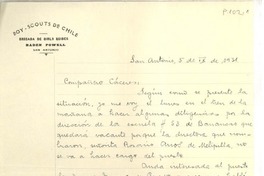 P102
BOY-SCOUTS DE CHILE
BRIGADA DE GIRLS GUIDES
BADEN POWELL
SAN ANTONIO
San Antonio, 5 de IX de 1931
Compañero Cáceres:
Según como se presente la
situación, yo me voy el lunes en el tren de la
mañana a hacer algunas diligencias por la
dirección de la escuela # 62 de Barrancas que
quedará vacante porque la directora que nom-
braron, señorita Rosario de Melipilla, no
se va a hacer cargo del puesto.
Anda